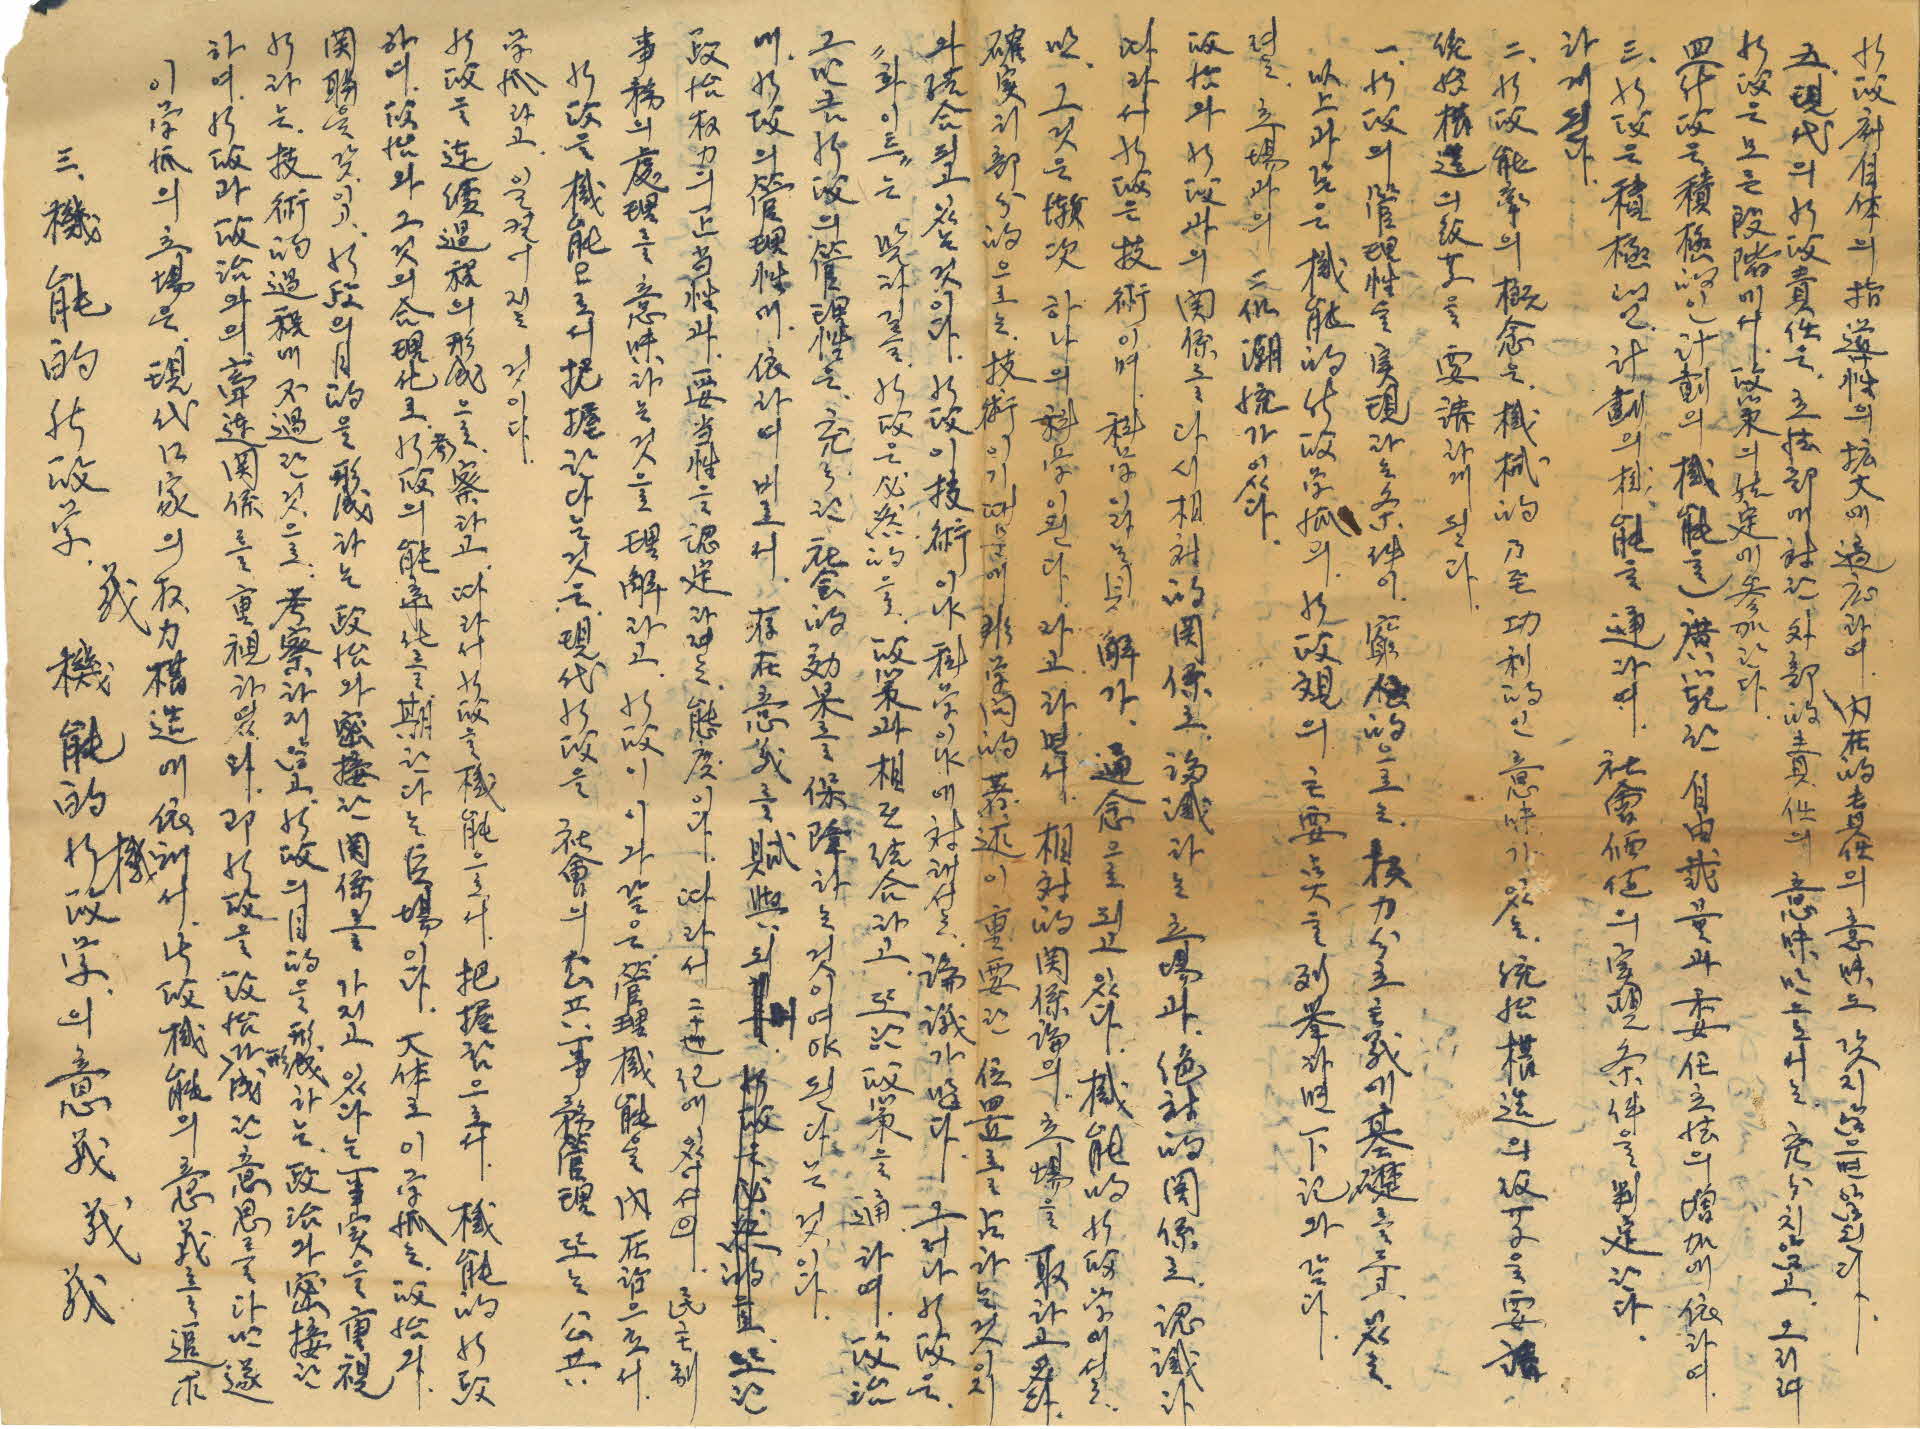 三. 機能的 行政学. 義 機能的 機 行政学.의 意義 義 義
이 学派의 立場은, 現代国家의 权力構造에 依해서, 行政機能의 意義를 追求
하여, 行政과 政治와의 牽連関係를 重視하였다. 即 行政을 政治가 成한 意思를 다만 遂
行하는, 技術的過程에 不過한 것으로, 考察하지 않고, 行政의 目的을 形成하는, 政治와 密接한
関聯을 갖이고, 行政의 目的을 形成하는 政治와 密接한 関係를 가지고 있다는 事実을 重視
하여, 政治와 그것의 合理化로, 行政의 能率化를 期한다는 立場이다. 大体로 이 学派는, 政治와,
行政을 連續過程의 形成으로, 考察하고, 따라서 行政을 機能으로서, 把握함으로서, 機能的 行政
学派라고, 일컬어지는 것이다.
行政을 機能으로서 把握한다는것은, 現代行政을 社会의 公共事務管理 또는 公共
事務의 處理를 意味하는것을 理解하고, 行政이 이과 같은, 管理機能을 內在함으로서,
政治权力의 正当性과, 妥当性을 認定하려는, 態度이다. 따라서 二十世紀에 있어서의, 民主制
에, 行政의 管理性에, 依하여 비로서, 存在意義를 賦與되며,
그만큼 行政의 管理性은, 充分한 社会的 効果를 保障하는 것이여야 된다는 것이다.
"화이트"는 말하길, 行政은 必然的으로, 政策과 相互結合하고, 또한 政策을 通하여, 政治
와 結合되고 있는 것이다. 行政이 技術이냐 科学이냐에 対해서는, 論議가 많다. 그러나 行政은,
確実히 部分的으로는, 技術이기 때문에 非学問的 叙述이 重要한 位置를 占하는것이지
만, 그것은 漸次 하나의 科学이된다. 라고 하면서, 相対的 関係論의, 立場을 取하고 있다.
따라서 行政은 技術이며, 科学이라는 見解가, 通念으로 되고 있다. 機能的行政学에서는,
政治와 行政과의 関係를 다시 相対的関係로, 論議하는 立場과, 絶対的 関係로, 認識하
려는, 立場과의 二個潮流가 있다.
以上과 같은 機能的行政学派의, 行政観의 主要点을 列挙하면 下記와 같다.
一. 行政의 管理性을 実現하는 条件이, 窮極的으로는, 权力分立主義에 基礎를 두고, 있는,
統治構造의 改革을 要請하게 된다.
二. 行政能率의 槪念은, 機械的 乃至 功利的인 意味가 있는, 統治構造의 改革을 要請
하게 된다.
三. 行政은 積極的인, 計劃의 機能을 通하여, 社会価値의 実現条件을 判定한다.
四. 行政은 積極的인 計劃의 機能을, 広汎한 自由裁量과 委任立法의 增加에 依하여,
行政은 모든 段階에서, 政策의 決定에 参加한다.
五. 現代의 行政責任은, 立法部에 対한 外部的 責任의 意味만으로서는, 充分치 않고, 오히려
行政府自体의 指導性의 拡大에 適応하며, 內在的責任의 意味도 갖지 않으면 않된다.